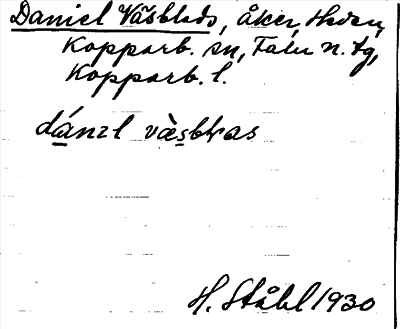 Daniel Väsblads, åker, Heden,
Kopparb. sn, Falu n. tg,
Kopparb. l.
dánɛl vàsbtras
H. Ståhl 1930